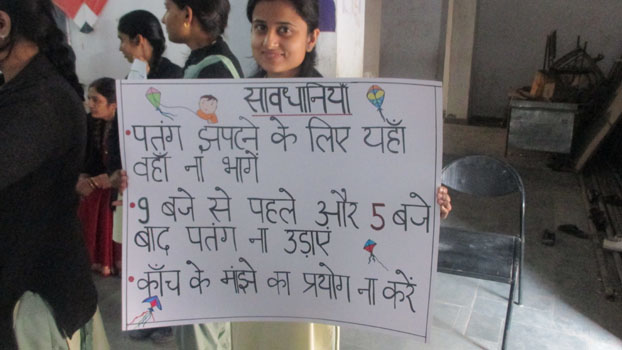 सावधानियाँ
• पतंग झपटने के लिए यहाँ
वहाँ ना भागें
• 9 बजे से पहले और 5 बजे
बाद पतंग ना उड़ाएं
• काँच के मांझे का प्रयोग ना करें